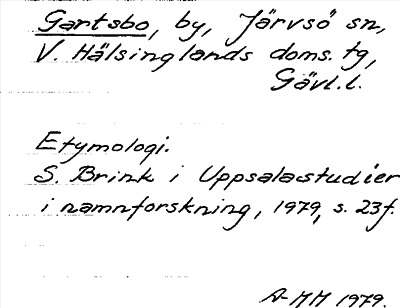 Gartsbo, by, Järvsö sn,
V. Hälsinglands doms. tg,
Gävl. l.
Etymologi.
S. Brink i Uppsalastudier
i namnforskning, 1979, s. 23f.
A-MH 1979.